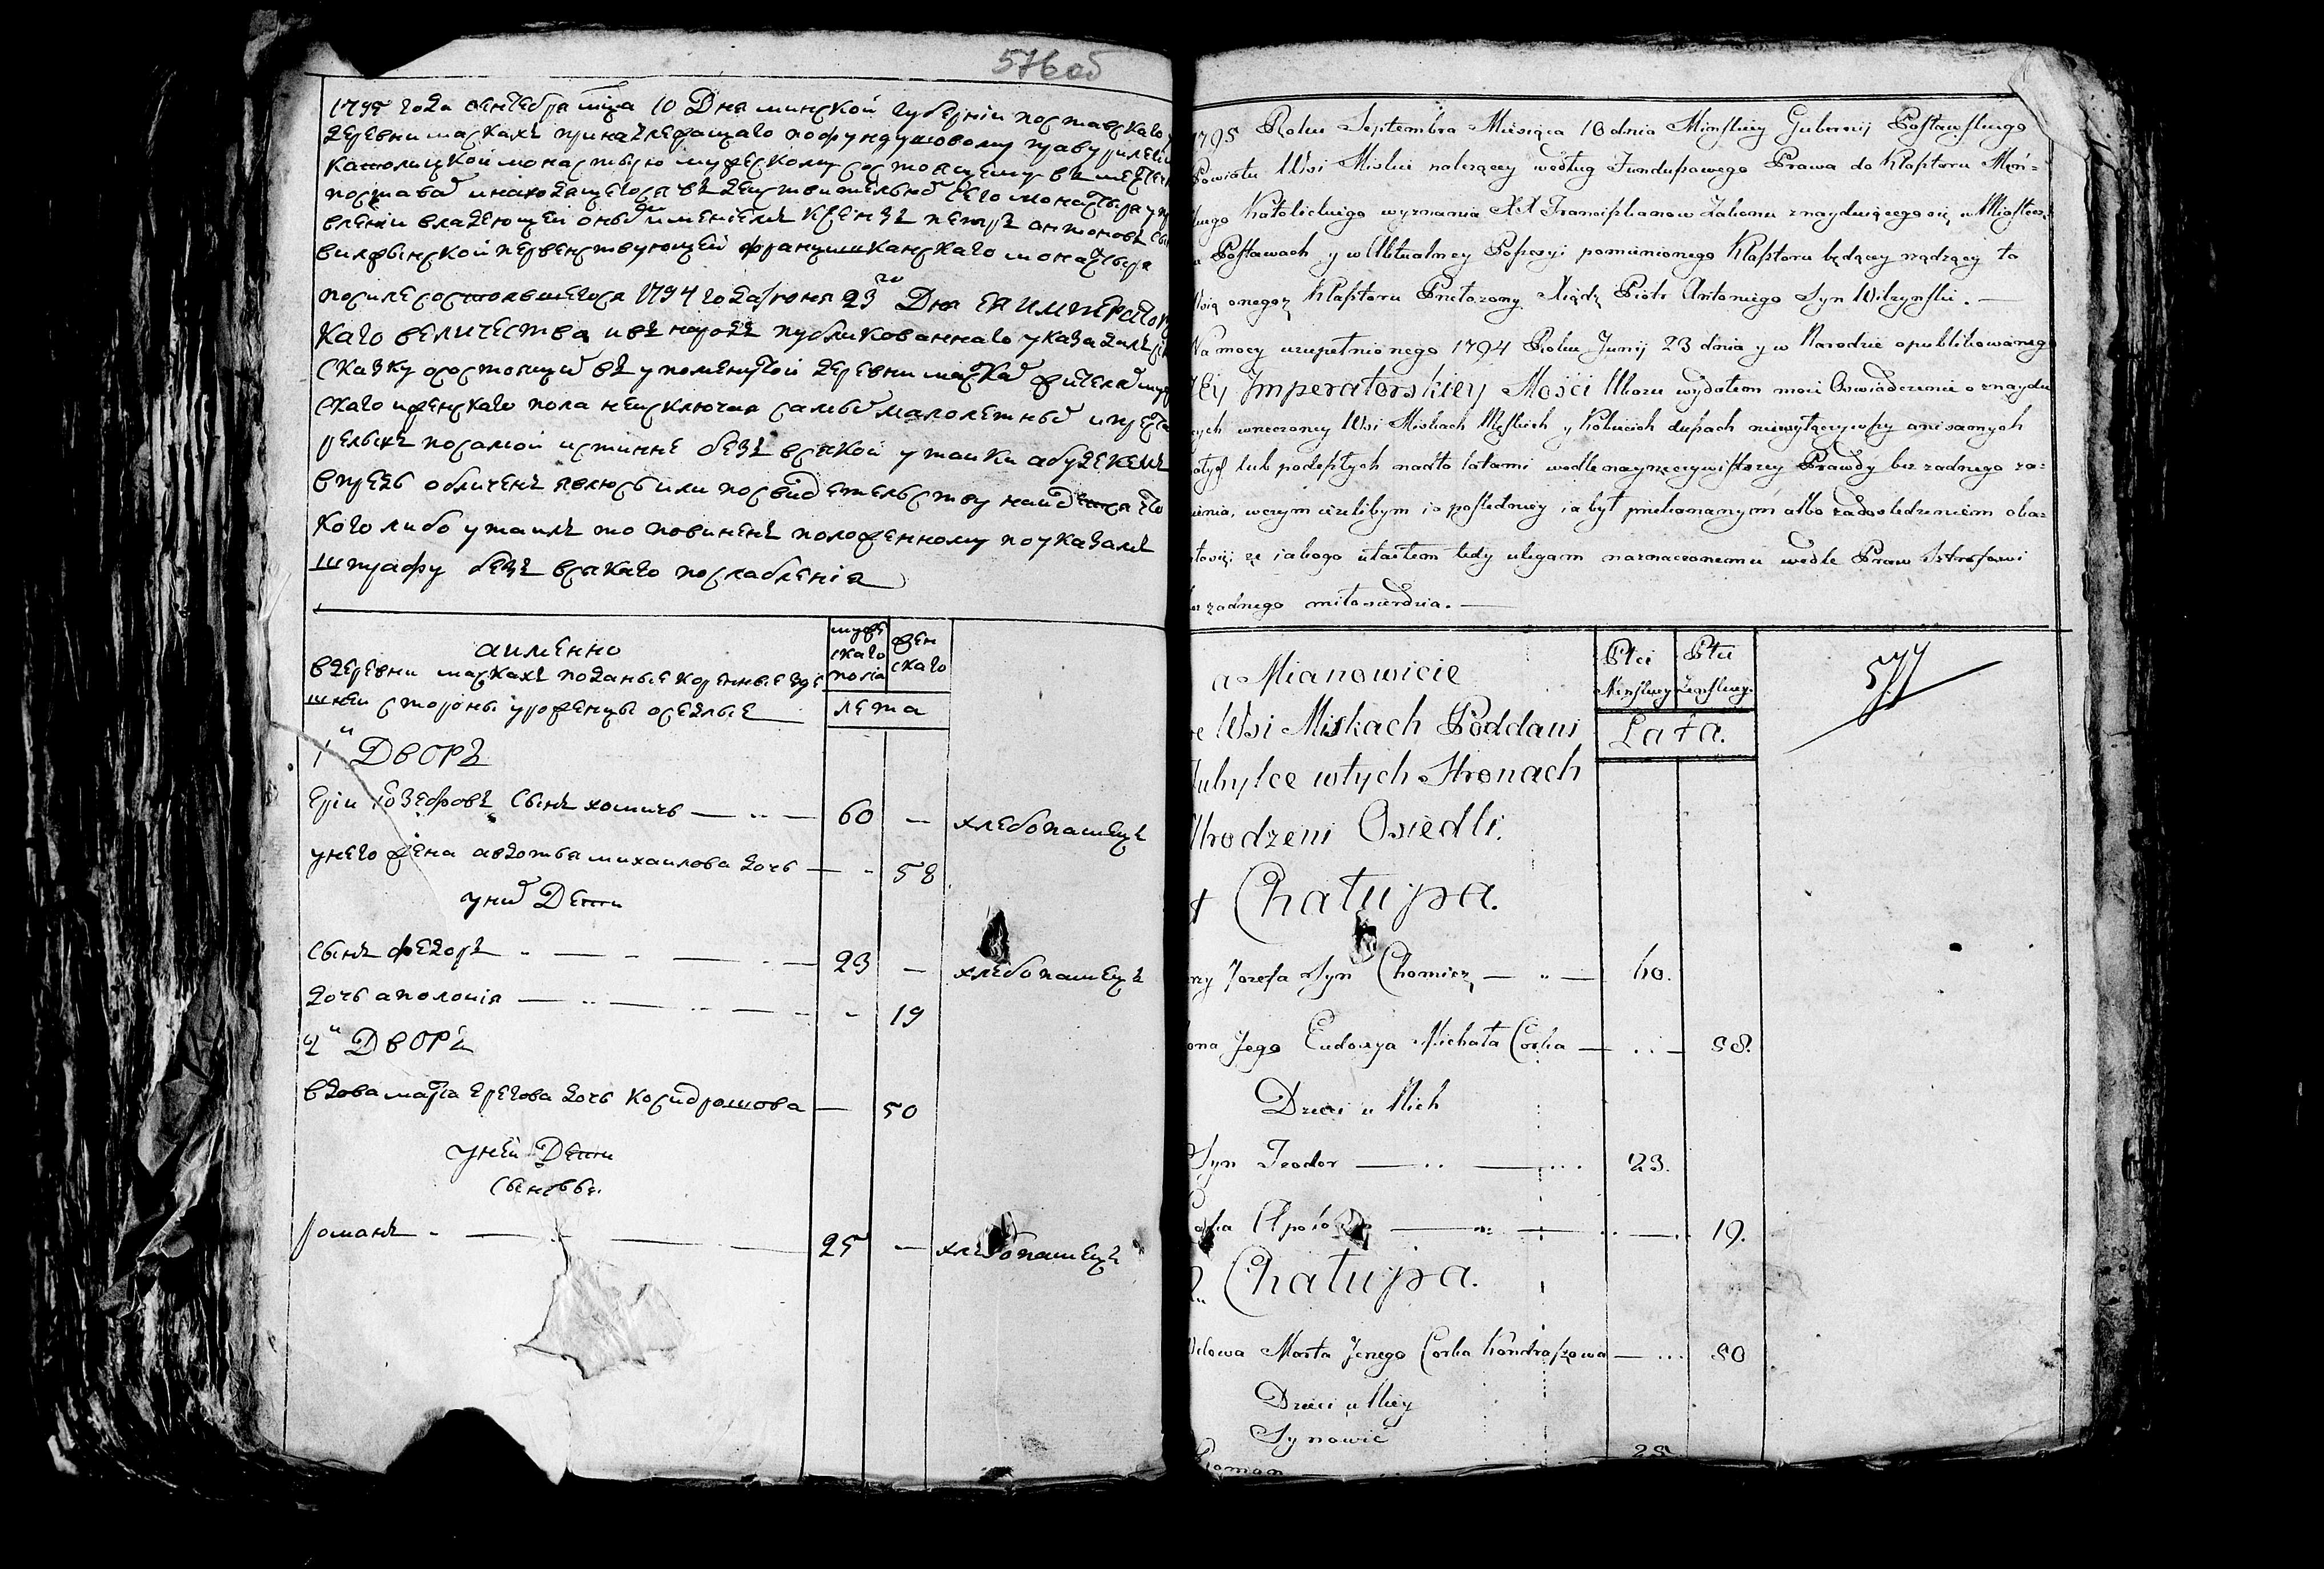 576 об
1795 года сентебра мца 10 Дня минской губерніи поставскаго
деревни маскахъ принадлежащаго пофундушовому праву римско
католицкой монастырю мужескому состоящему въ местечк
поставах инаходящегося въ действительной сего монастыра упр
влении владеющей оным имениемъ ксендзъ петръ антоновъ сы
францишканскаго монастыря
послесостоявшегося 1794 года июня 23го Дня ЕЯ ИМПЕРАТОР
Каго величества ивъ народъ публикованнаго указа далъ
Сказку осостоящих въ упоменутой деревни масках жителях муже
скаго иженскаго пола неисключая самых малолетных ипрест
релыхъ посамой истинне безъ всякой утайки абуде кемъ
впредь обличенъ явлюсь или посвидетельству найдется что
Кого либо утаилъ то повиненъ положенному поуказамъ
штрафу безъ всякаго послабления
аименно
вдеревни маскахъ поданые коренные зде
шней стороны уроженцы оседлые
муже
скаго
пола
жен
скаго
лета
1й Дворъ
Юзефовъ Сынъ хомичь 60 — хлебопашецъ
унего жена авдотья михаилова дочь — 58
уних Дети
Сынъ Федоръ 23 — хлебопашецъ
дочь аполонія — 19
2й Дворъ
вдова марта дочь — 50
уней Дети
Сыновья
романъ 25 — хлебопашецъ
1795 Roku Septembra Miesiąca 10 dnia Minskiey Gubernij Postawskiego
Powiatu Wsi Miski należący według Funduszowego Prawa do Klasztoru Męs-
kiego Katolickiego wyznania XX Franciszkanow Zakonu znayduiącego się w Miastecz
Postawach y w Aktualney Possesyi pomienionego Klasztoru będący rządzący tą
Wsią onegoz Klasztoru Przełożony Xiądz Piotr Antoniego Syn Wilczynski. —
Na mocy uzupełnionego 1794 Roku Junij 23 dnia y w Narodzie opublikowanego
Jey Imperatorskiey Mości Ukazu wydałem moie Oswiadczenie o znaydu
cych wrzeczoney Wsi Miskach Męskich y Kobiecich duszach niewyłączywszy ani samych
lub podeszłych nadto latami wedle nayrzeczywistszey Prawdy bez żadnego za=
ienia, wczym ieżelibym ia pośledniey ia był przekonanym albo zadosledzeniem oka=
że iakogo utaiłem tedy ulegam naznaczonemu wedle Praw Sztrofowi
bez żadnego miłosierdzia. —
a Mianowicie
we Wsi Miskach Poddani
wtych Stronach
Urodzeni Osiedli.
Płci
Męskiey
Płci
Żeńskiey
Lata.
577
1 Chałupa.
Jozefa Syn Chomicz — 60.
żona Jego Eudoxya Michała Corka — 58.
Dzieci u Nich
Syn Teodor — 23.
19.
2. Chałupa.
Wdowa Marta Corka Kondraszowa — 50
Dzieci u Niey
Synowie
Roman 25